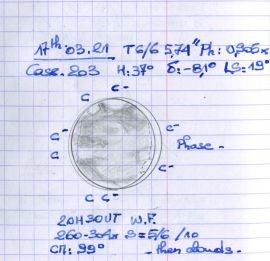 17th 03.21 T6/6 5,74" Ph: 0,906x
Case. 203 H: 37° δ: -8,1° LS: 19°
C-
C C-
C- C-
C C-
C-
Phase -
20H30UT W.F.
260-304x S=5/6 /10
CM: 99° - then clouds. -